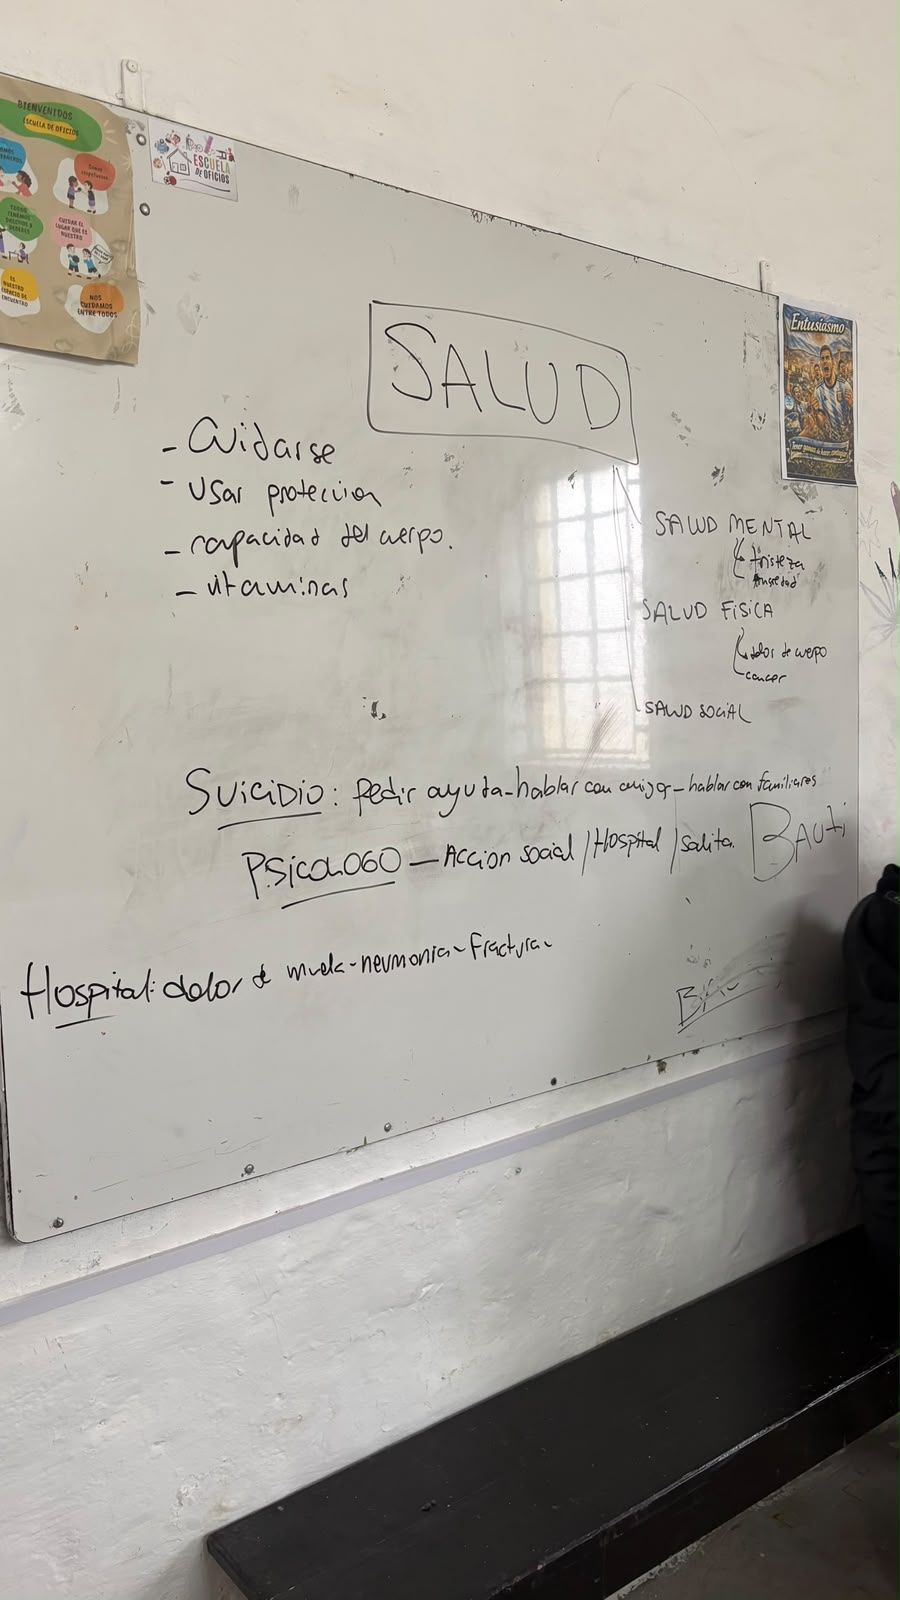 BIENVENIDOS
ESCUELA DE OFICIOS
Somos respetuosos
TODOS TENEMOS DERECHOS Y DEBERES
CUIDAR EL LUGAR QUE ES NUESTRO
ES NUESTRO ESPACIO DE ENCUENTRO
NOS CUIDAMOS ENTRE TODOS
ESCUELA
DE OFICIOS
Entusiasmo
SALUD
- Cuidarse
- Usar proteccion
- capacidad del cuerpo.
- vitaminas
SALUD MENTAL
tristeza
Ansiedad
SALUD FISICA
dolor de cuerpo
cancer
SALUD SOCIAL
SUICIDIO: Pedir ayuda - hablar con amigos - hablar con familiares
PSICOLOGO - Accion social / Hospital / salita.
BAUti
Hospital: dolor de muela - neumonia - Fractura -